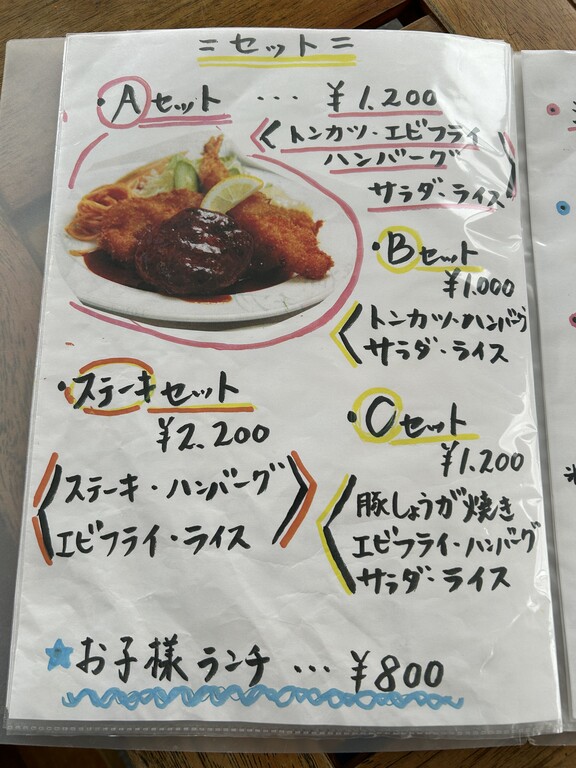 =セット=
・Aセット ・・・ ¥1,200
トンカツ・エビフライ
ハンバーグ
サラダ・ライス
・Bセット
¥1,000
トンカツ・ハンバーグ
サラダ・ライス
・ステーキセット
¥2,200
ステーキ・ハンバーグ
エビフライ・ライス
・Cセット
¥1,200
豚しょうが焼き
エビフライ・ハンバーグ
サラダ・ライス
★お子様ランチ ・・・ ¥800